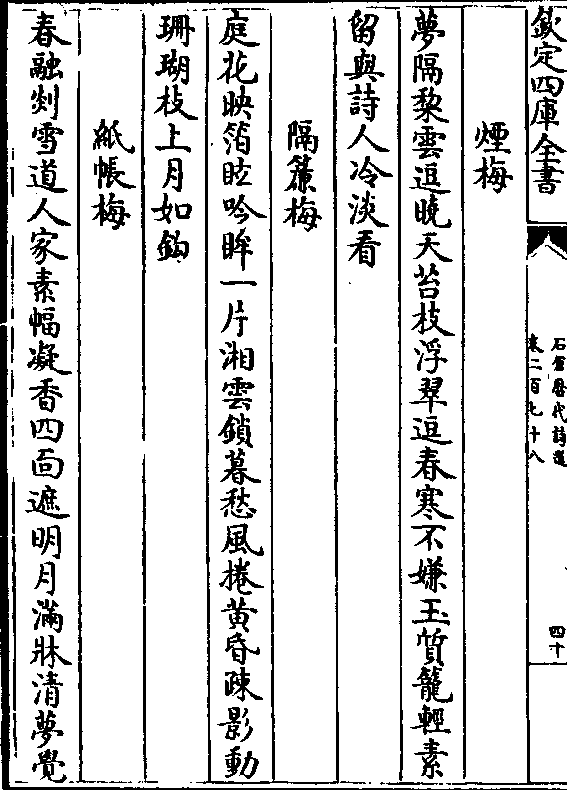 欽定四庫全書
石倉歷代詩選
卷二百七十八
四十
煙梅
夢隔黎雲逗曉天苔枝浮翠逗春寒不嫌玉質籠輕素
留與詩人冷淡看
隔簾梅
庭花映箔眩吟眸一片湘雲鎖暮愁風捲黄昏疎影動
珊瑚枝上月如鈎
紙帳梅
春融剡雪道人家素幅凝香四面遮明月滿牀清夢覺